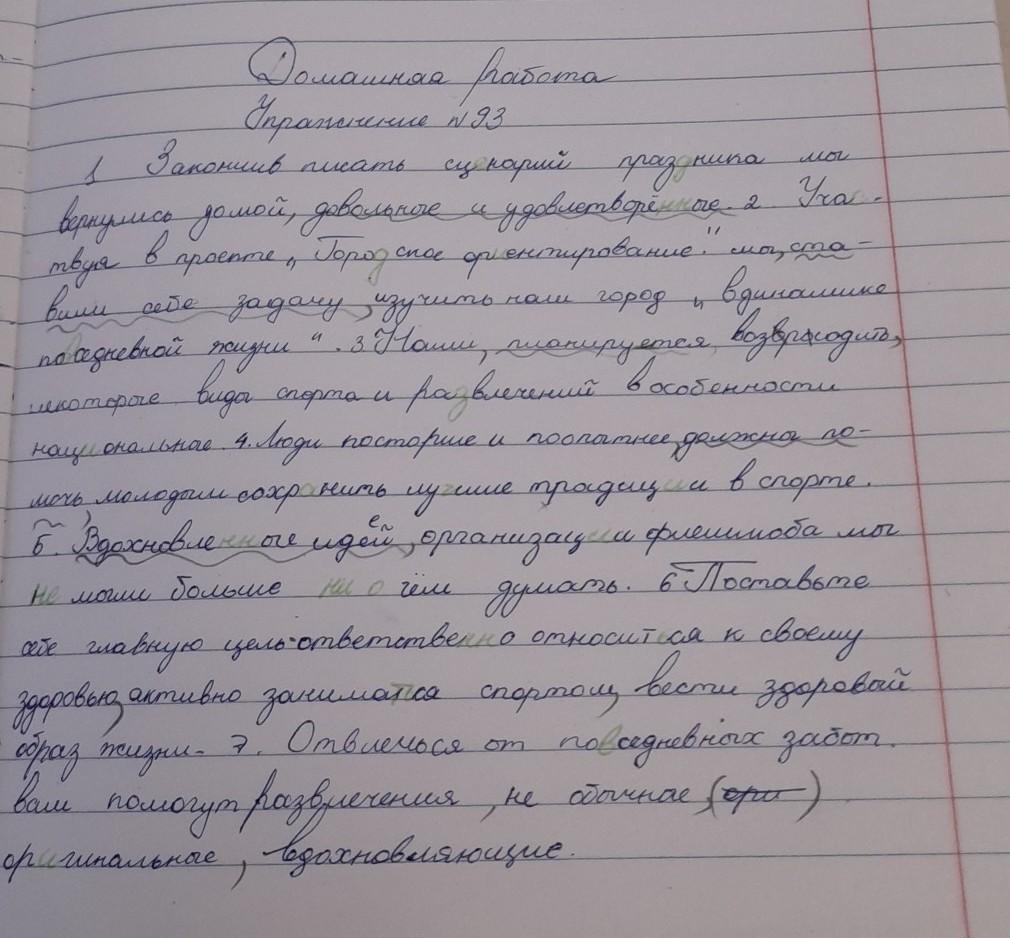 Домашная работа
Упражнение №93
1 Закончив писать сценарий праздника мы
вернулись домой, довольные и удовлетворённые. 2. Учас-
твуя в проекте „Городское ориентирование" мы, ста-
вили себе задачу, изучить наш город „ вдинамике
повседневной жизни". 3. Нами, планируется, возвраждить,
некоторые виды спорта и развлечений в особенности
национальные. 4. Люди постарше и поопытнее, должна по-
мочь, молодым сохранить лучшие традиции в спорте.
5. Вдохновленные идеей, организации флешмоба мы
не могли больше ни о чём думать. 6 Поставьте
себе главную цель-ответственно относится к своему
здоровью, активно заниматса спортом, вести здоровый
образ жизни- 7. Отвлечься от повседневных забот.
вам помогут развлечения, не обычные, (ори)
оригинальные, вдохновляющие.